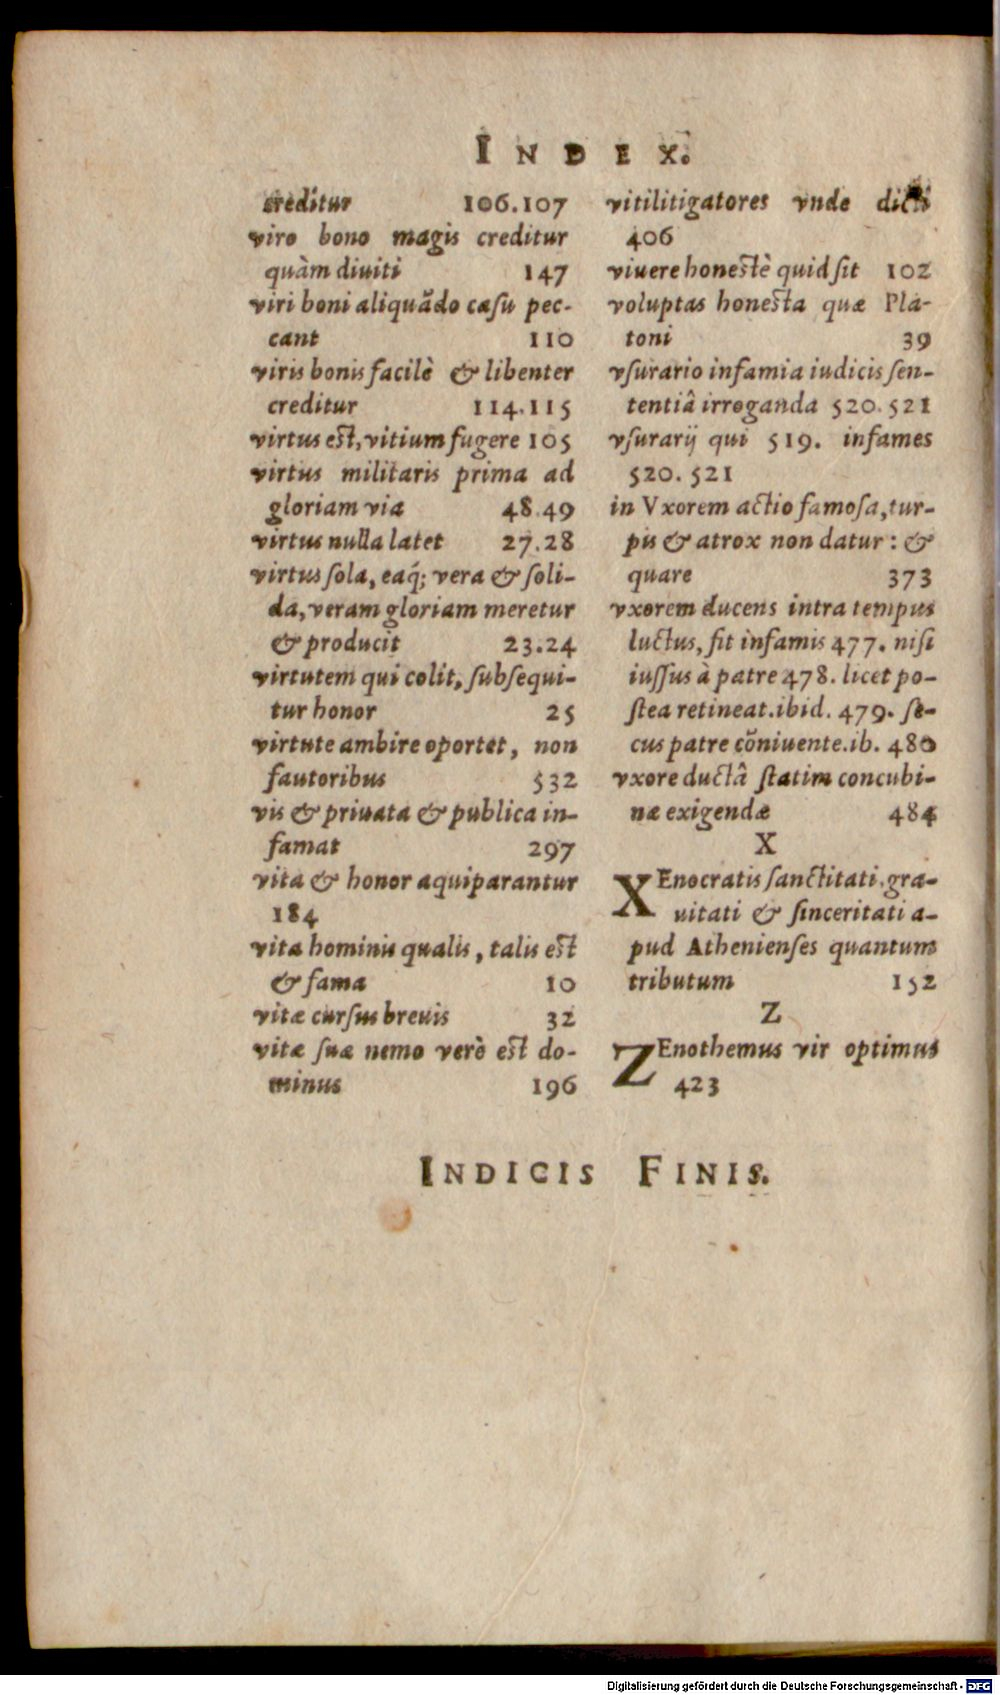 INDEX.
creditur 106.107
viro bono magis creditur
quàm diuiti 147
viri boni aliquãdo casu pec-
cant 110
viris bonis facilè & libenter
creditur 114.115
virtus est, vitium fugere 105
virtus militaris prima ad
gloriam via 48.49
virtus nulla latet 27.28
virtus sola, eaq́; vera & soli-
da, veram gloriam meretur
& producit 23.24
virtutem qui colit, subsequi-
tur honor 25
virtute ambire oportet, non
fautoribus 532
vis & priuata & publica in-
famat 297
vita & honor aquiparantur
184
vita hominis qualis, talis est
& fama 10
vitæ cursus breuis 32
vitæ suæ nemo verè est do-
minus 196
vitilitigatores vnde dicti
406
viuere honestè quid sit 102
voluptas honesta quæ Pla-
toni 39
vsurario infamia iudicis sen-
tentiâ irroganda 520.521
vsurarij qui 519. infames
520. 521
in Vxorem actio famosa, tur-
pis & atrox non datur: &
quare 373
vxorem ducens intra tempus
luctus, fit infamis 477. nisi
iussus à patre 478. licet po-
stea retineat. ibid. 479. se-
cus patre cõniuente. ib. 480
vxore ductâ statim concubi-
næ exigendæ 484
X
XEnocratis sanctitati, gra-
uitati & sinceritati a-
pud Athenienses quantum
tributum 152
Z
ZEnothemus vir optimus
423
INDICIS FINIS.
Digitalisierung gefördert durch die Deutsche Forschungsgemeinschaft - DFG